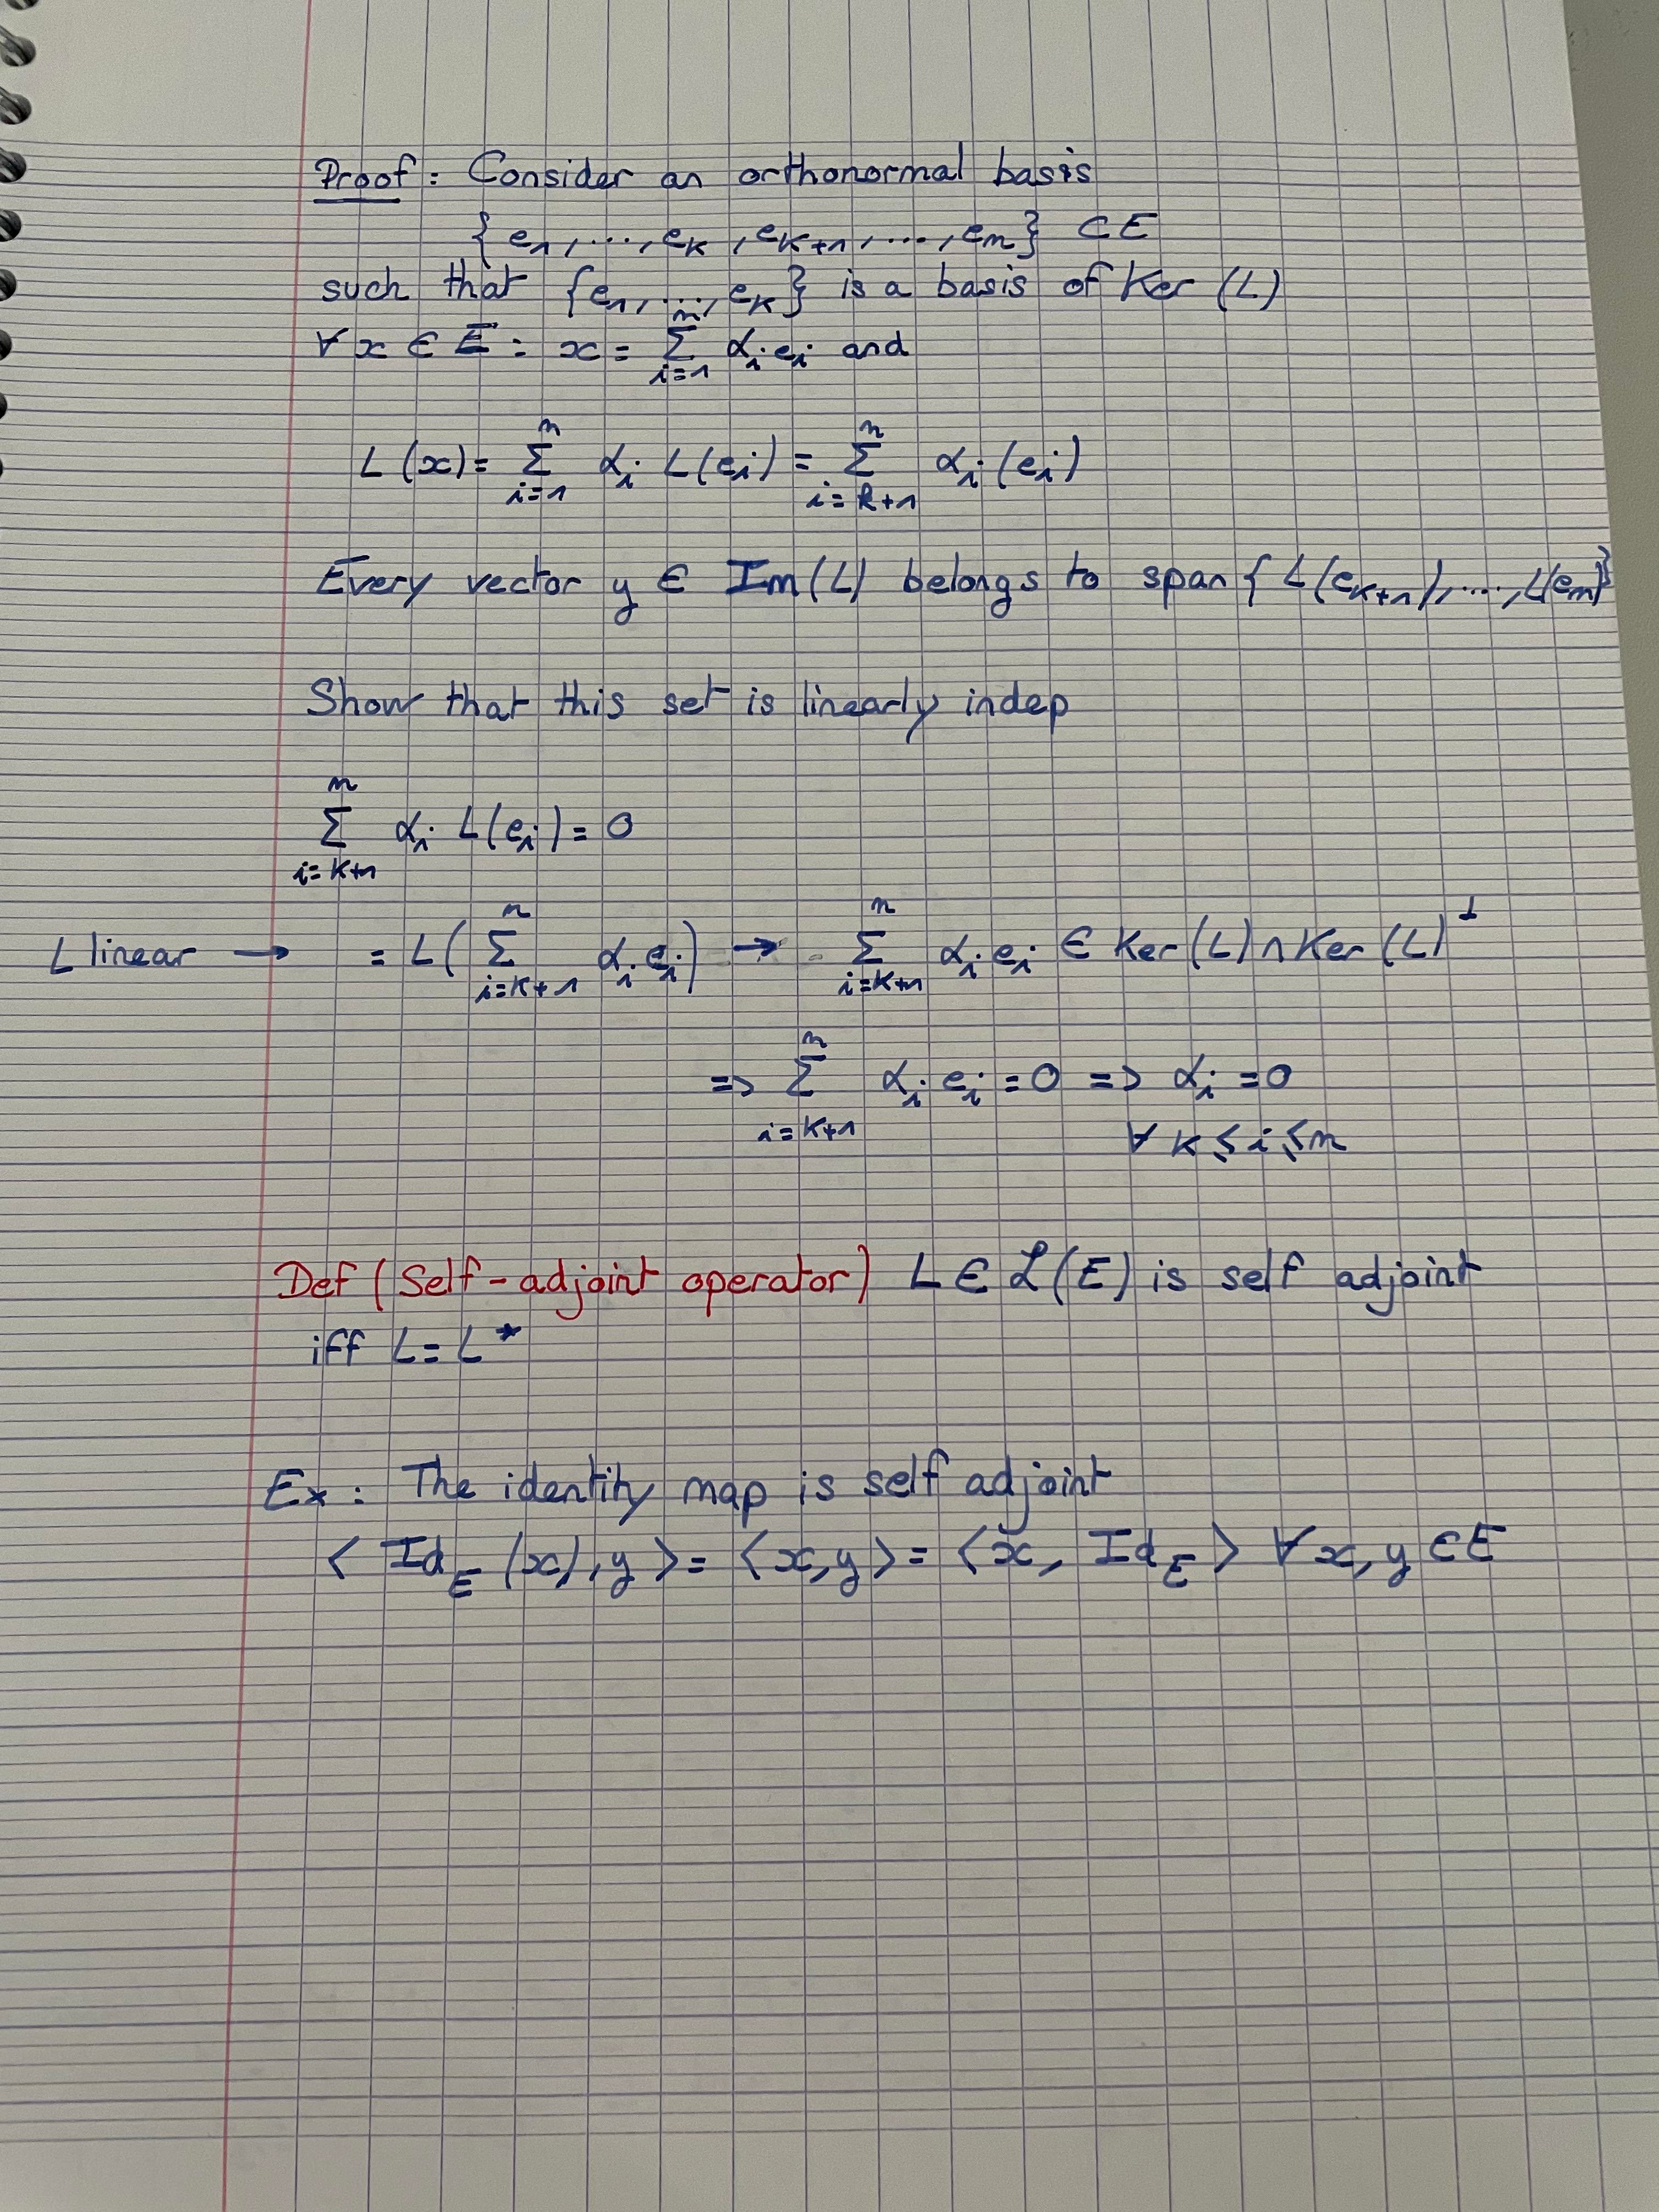 Proof : Consider an orthonormal basis
{e₁, ..., eₖ, eₖ₊₁, ..., eₙ} ⊂ E
such that {e₁, ..., eₖ} is a basis of Ker (L)
∀ x ∈ E : x = ∑ᵢ₌₁ⁿ αᵢ eᵢ and
L(x) = ∑ᵢ₌₁ⁿ αᵢ L(eᵢ) = ∑ᵢ₌ₖ₊₁ⁿ αᵢ (eᵢ)
Every vector y ∈ Im(L) belongs to span {L(eₖ₊₁), ..., L(eₙ)}
Show that this set is linearly indep
∑ᵢ₌ₖ₊₁ⁿ αᵢ L(eᵢ) = 0
L linear → = L(∑ᵢ₌ₖ₊₁ⁿ αᵢ eᵢ) → ∑ᵢ₌ₖ₊₁ⁿ αᵢ eᵢ ∈ Ker (L) ∩ Ker (L)^⊥
=> ∑ᵢ₌ₖ₊₁ⁿ αᵢ eᵢ = 0 => αᵢ = 0
∀ k ≤ i ≤ n
Def (Self-adjoint operator) L ∈ ℒ(E) is self adjoint
iff L = L*
Ex : The identity map is self adjoint
⟨Id_E (x), y⟩ = ⟨x, y⟩ = ⟨x, Id_E⟩ ∀ x, y ∈ E